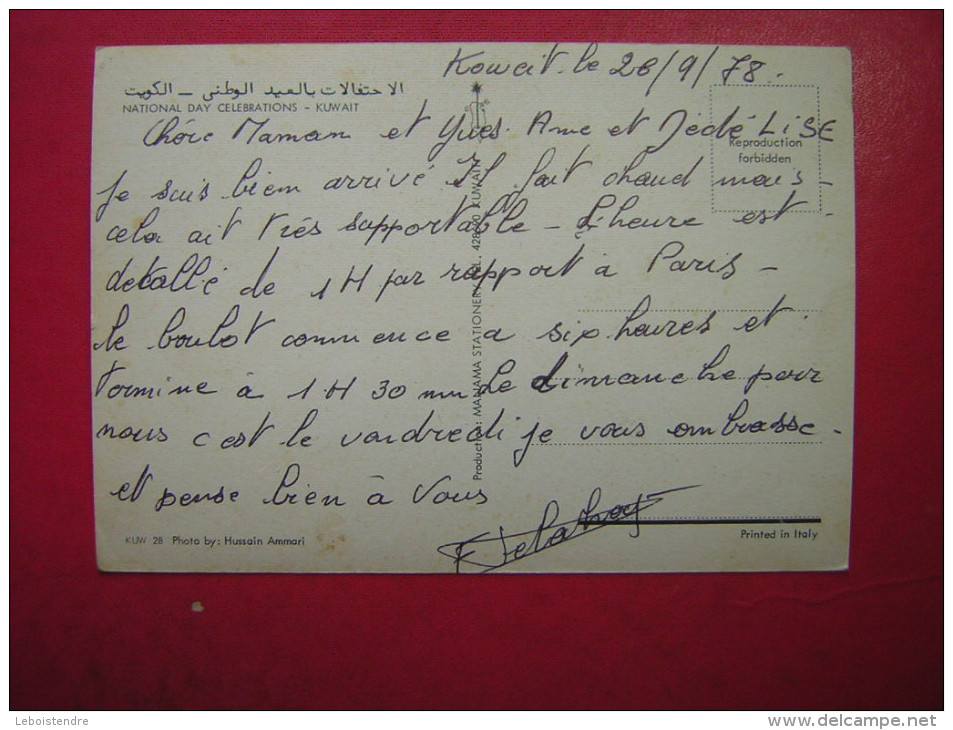 Koweit le 26/9/78.
الاحتفالات بالعيد الوطني - الكويت
NATIONAL DAY CELEBRATIONS - KUWAIT
Reproduction
forbidden
Chére Maman et Yves. Anne et Dédé LISE
Je suis bien arrivé Il fait chaud mais -
cela ait trés supportable - L'heure est -
decallé de 1H par rapport à Paris -
le boulot commence a six heures et
termine à 1H 30 mn Le dimanche pour
nous c'est le vendredi je vous embrasse -
et pense bien à vous
Production: MANAMA STATIONERY TEL. KUWAIT
KUW 28 Photo by: Hussain Ammari
Printed in Italy
Leboistendre
www.delcampe.net